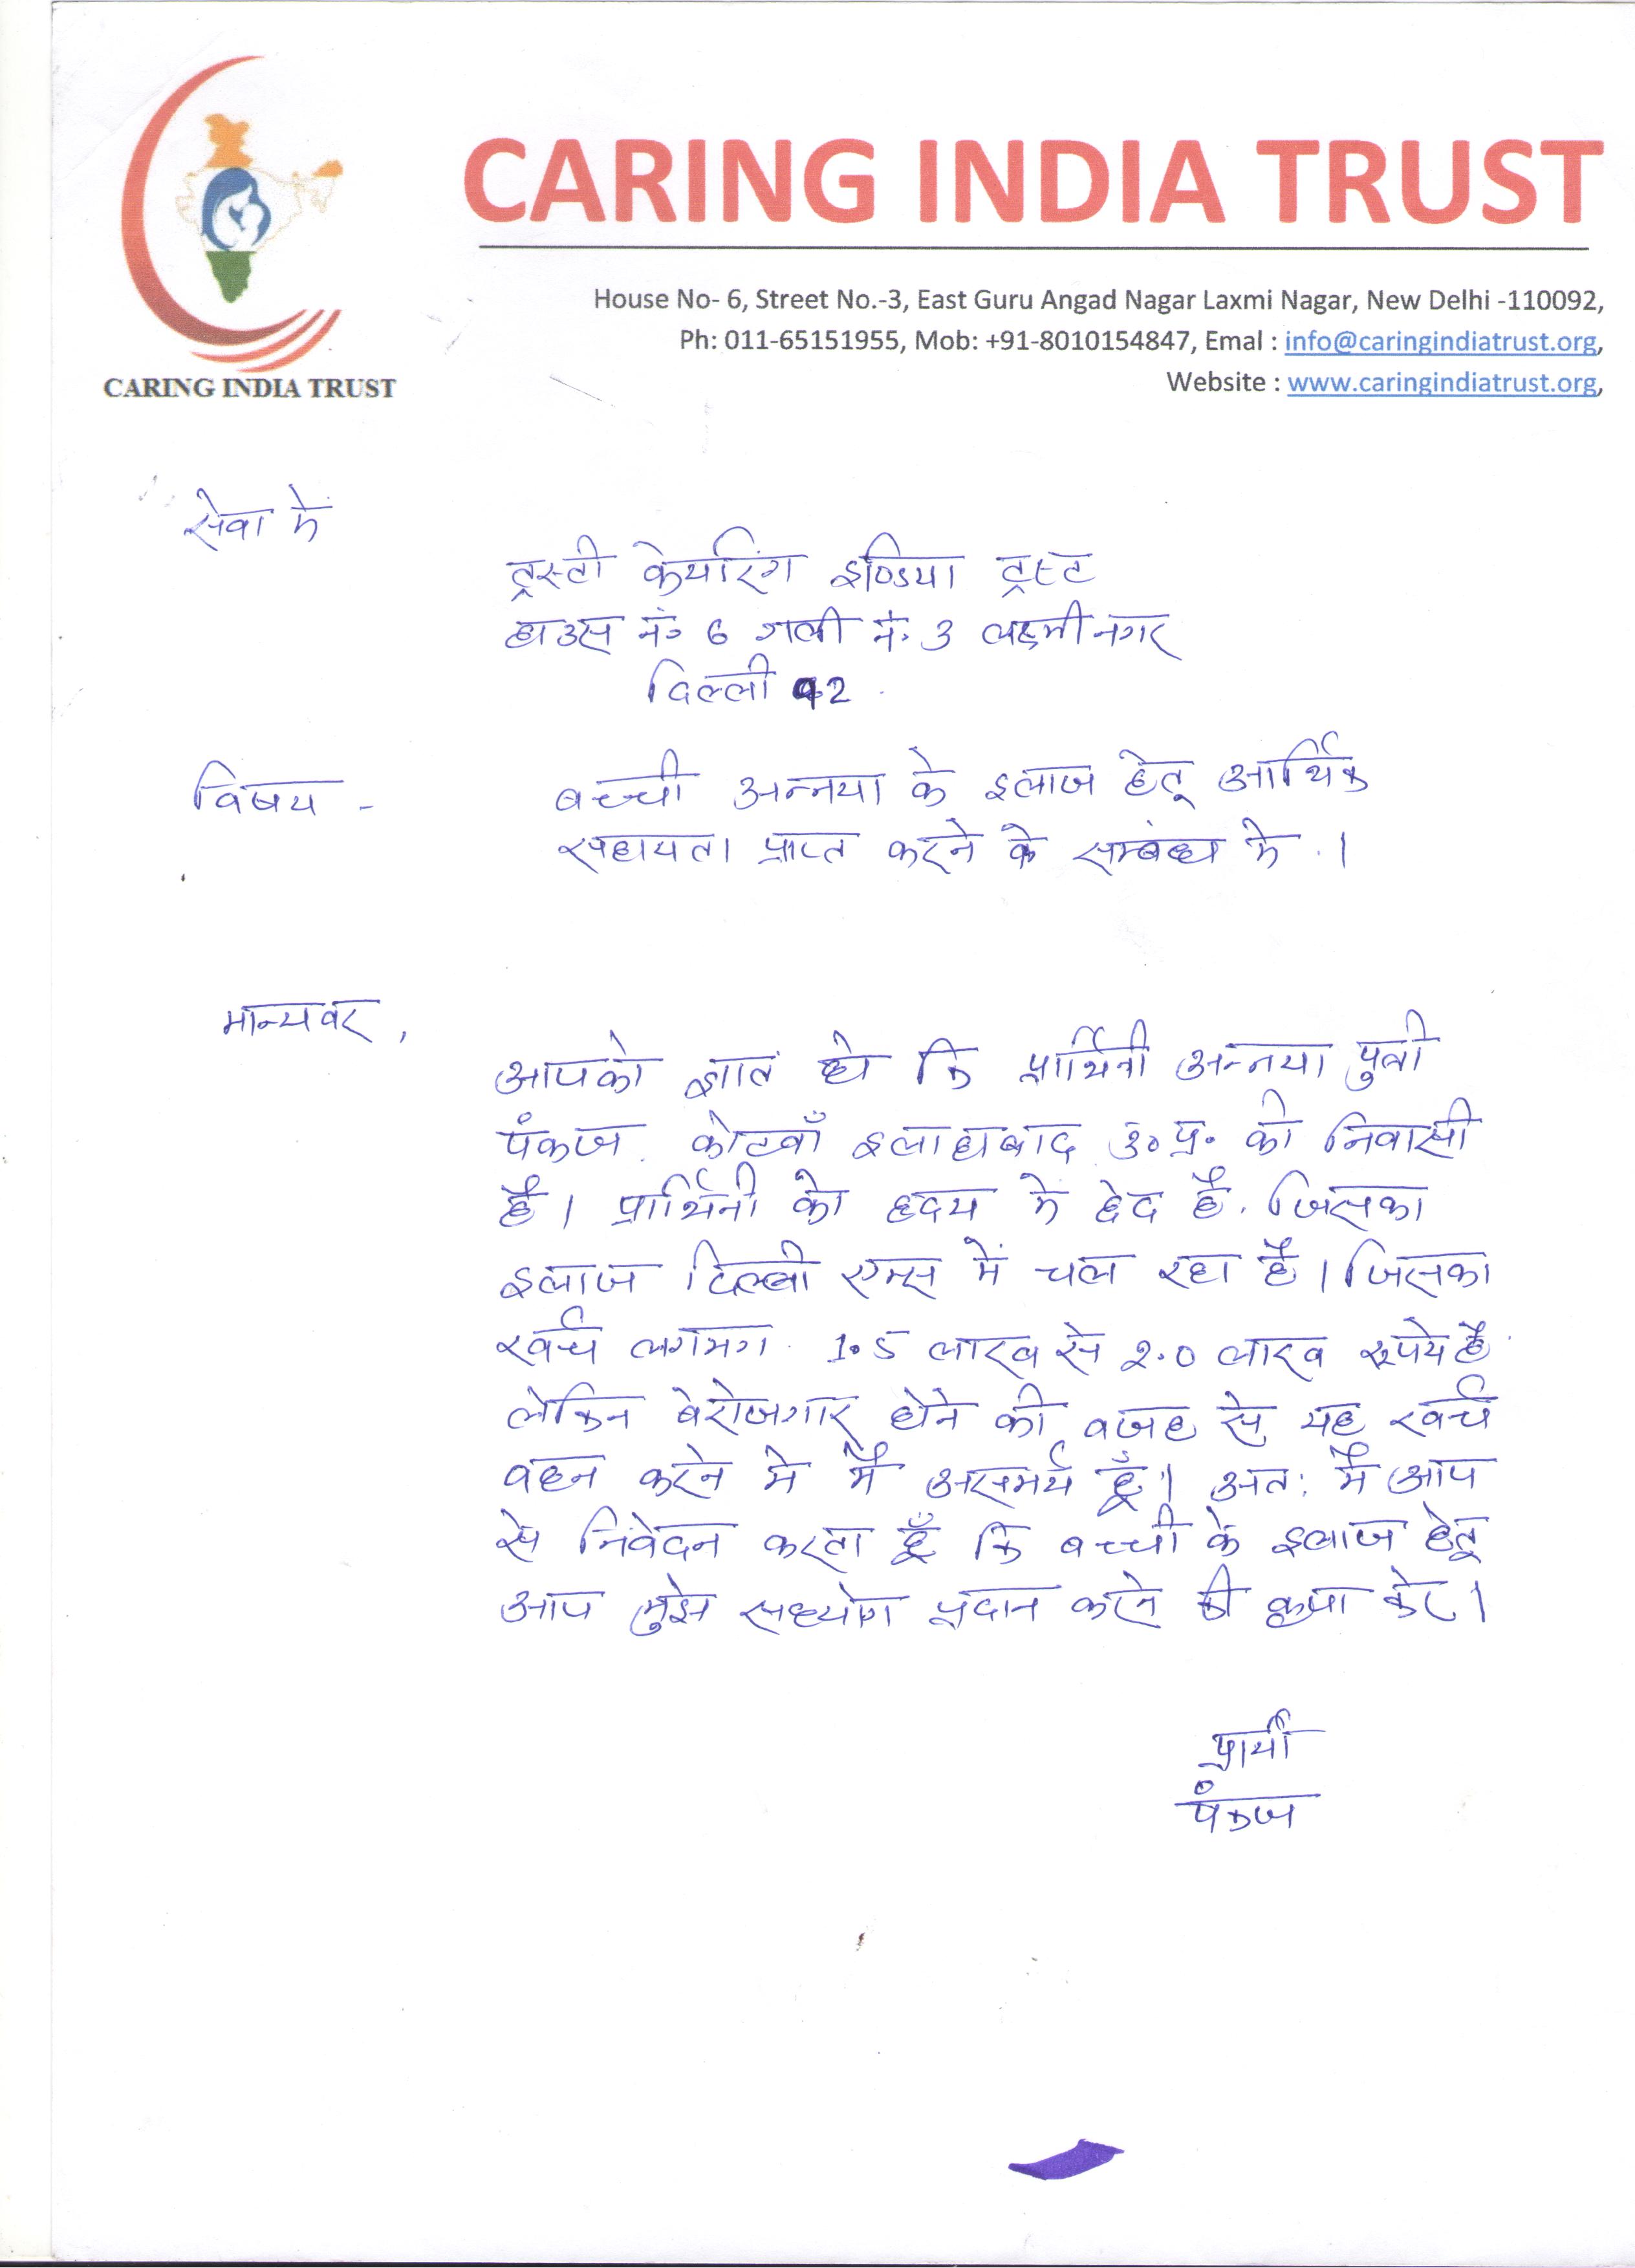 CARING INDIA TRUST
CARING INDIA TRUST
House No- 6, Street No.-3, East Guru Angad Nagar Laxmi Nagar, New Delhi -110092,
Ph: 011-65151955, Mob: +91-8010154847, Emal : info@caringindiatrust.org,
Website : www.caringindiatrust.org,
सेवा में
ट्रस्टी केयरिंग इण्डिया ट्रस्ट
हाउस नं॰ 6 गली नं॰ 3 लक्ष्मी नगर
दिल्ली 92
विषय -
बच्ची अन्नया के इलाज हेतू आर्थिक
सहायता प्राप्त करने के सम्बंध मे ।
मान्यवर,
आपको ज्ञात हो कि प्रार्थिनी अन्नया पुत्री
पंकज कोटवाँ इलाहाबाद उ॰ प्र॰ की निवासी
है। प्रार्थिनी को ह्रदय मे छेद है, जिसका
इलाज दिल्ली एम्स में चल रहा है। जिसका
खर्च लगभग 1.5 लाख से 2.0 लाख रूपये है
लेकिन बेरोजगार होने की वजह से यह खर्च
वहन करने मे मैं असमर्थ हूँ। अत: मैं आप
से निवेदन करता हूँ कि बच्ची के इलाज हेतू
आप मुझे सहयोग प्रदान करने की कृपा करे।
प्रार्थी
पंकज